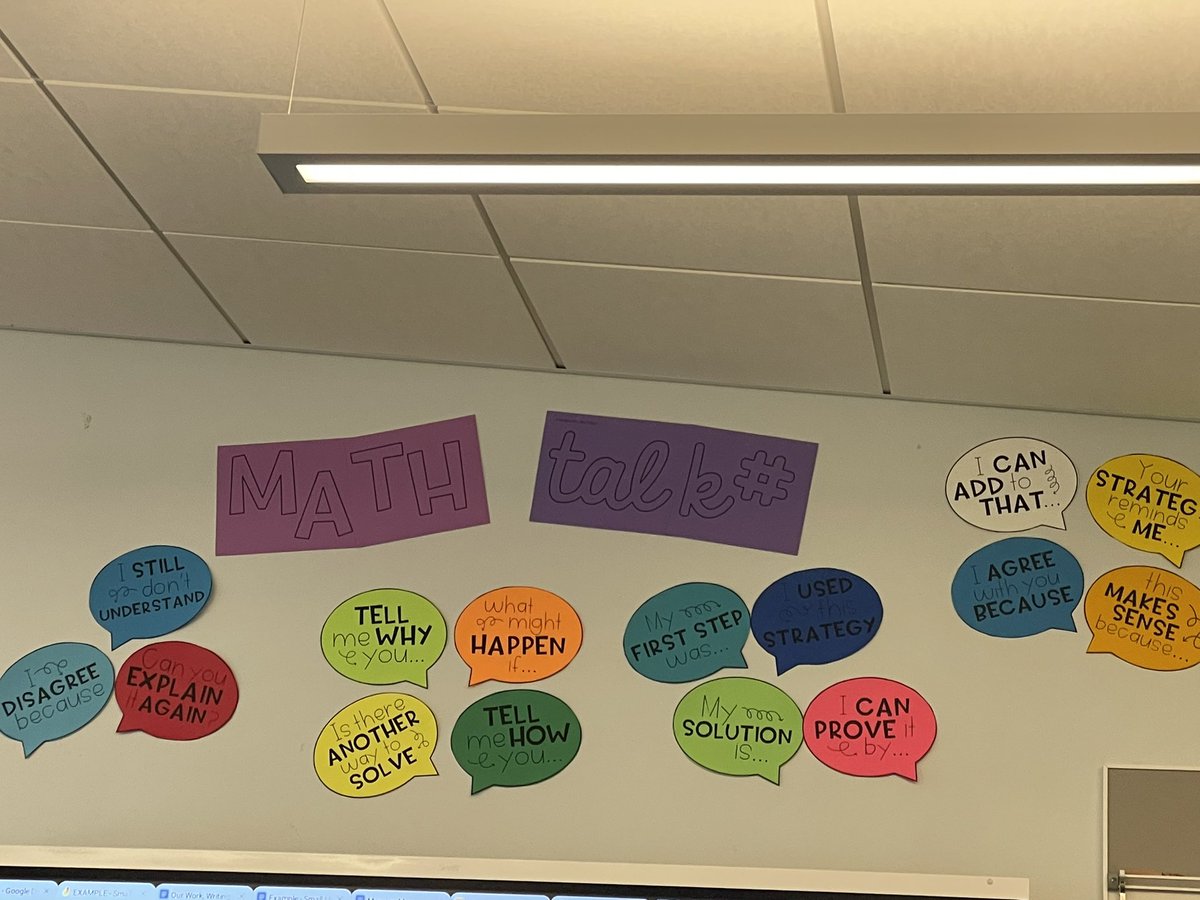 MATH
talk#
I STILL
don't
UNDERSTAND
I
DISAGREE
because
Can you
EXPLAIN
it AGAIN?
TELL
me WHY
you...
what
might
HAPPEN
if...
Is there
ANOTHER
way to
SOLVE
TELL
me HOW
you...
My
FIRST STEP
was...
I USED
this
STRATEGY
My
SOLUTION
IS...
I CAN
PROVE it
by...
I CAN
ADD to
THAT...
Your
STRATEG
reminds
ME...
I AGREE
with you
BECAUSE
this
MAKES
SENSE
because...
- Google
EXAMPLE - Smal
Our Work, Writing
Example - Small